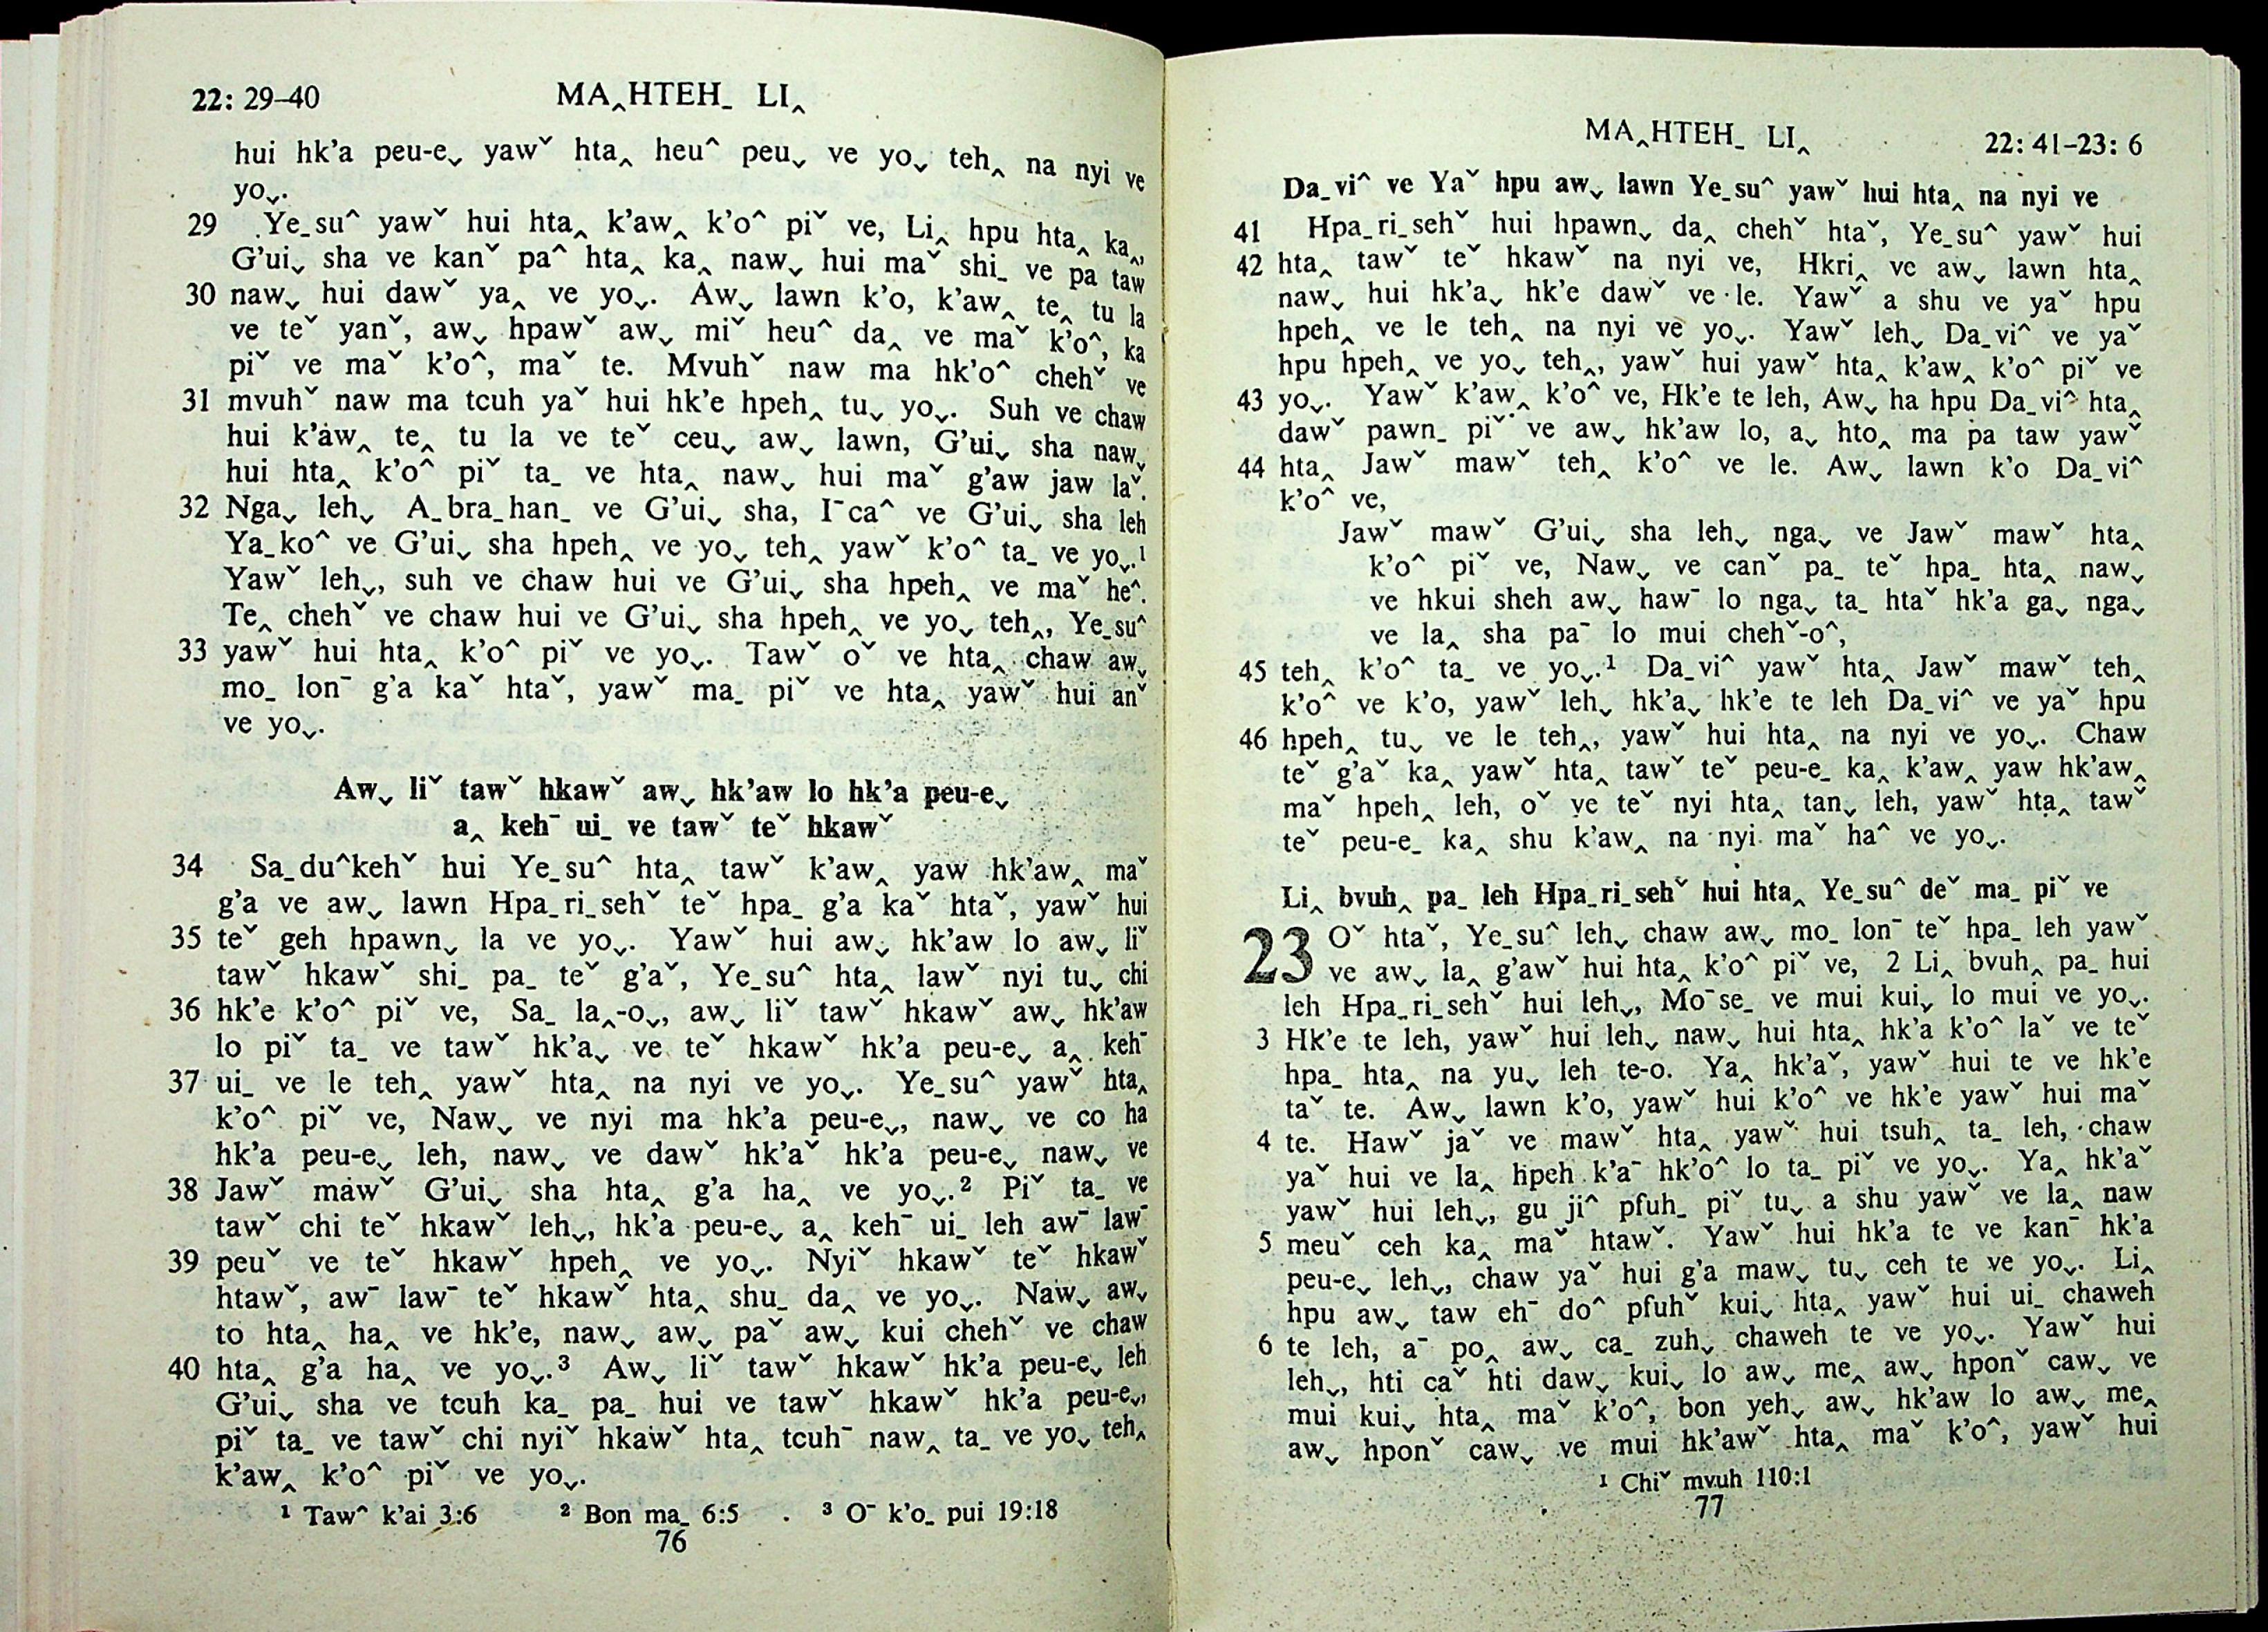 22: 29–40
MA‸HTEH_ LI‸
hui hk’a peu-eˬ yawˇ hta‸ heu^ peuˬ ve yoˬ teh‸ na nyi ve
yoˬ.
29 Ye_su^ yawˇ hui hta‸ k’aw‸ k’o^ piˇ ve, Li‸ hpu hta‸ ka‸,
G’uiˬ sha ve kanˇ pa^ hta‸ ka‸ nawˬ hui maˇ shi_ ve pa taw
30 nawˬ hui dawˇ ya‸ ve yoˬ. Awˬ lawn k’o, k’aw‸ te‸ tu la
ve teˇ yanˇ, awˬ hpawˇ awˬ miˇ heu^ da‸ ve maˇ k’o^, ka
piˇ ve maˇ k’o^, maˇ te. Mvuhˇ naw ma hk’o^ chehˇ ve
31 mvuhˇ naw ma tcuh yaˇ hui hk’e hpeh‸ tuˬ yoˬ. Suh ve chaw
hui k’aw‸ te‸ tu la ve teˇ ceuˬ awˬ lawn, G’uiˬ sha nawˬ
hui hta‸ k’o^ piˇ ta_ ve hta‸ nawˬ hui maˇ g’aw jaw laˇ.
32 Ngaˬ lehˬ A_bra_han_ ve G’uiˬ sha, Iˉca^ ve G’uiˬ sha leh
Ya_ko^ ve G’uiˬ sha hpeh‸ ve yoˬ teh‸ yawˇ k’o^ ta_ ve yoˬ.¹
Yawˇ lehˬ, suh ve chaw hui ve G’uiˬ sha hpeh‸ ve maˇ he^.
Te‸ chehˇ ve chaw hui ve G’uiˬ sha hpeh‸ ve yoˬ teh‸, Ye_su^
33 yawˇ hui hta‸ k’o^ piˇ ve yoˬ. Tawˇ oˇ ve hta‸ chaw awˬ
mo_ lonˉ g’a kaˇ htaˇ, yawˇ ma_ piˇ ve hta‸ yawˇ hui anˇ
ve yoˬ.
Awˬ liˇ tawˇ hkawˇ awˬ hk’aw lo hk’a peu-eˬ
a‸ kehˉ ui_ ve tawˇ teˇ hkawˇ
34 Sa_du^kehˇ hui Ye_su^ hta‸ tawˇ k’aw‸ yaw hk’aw‸ maˇ
g’a ve awˬ lawn Hpa_ri_sehˇ teˇ hpa_ g’a kaˇ htaˇ, yawˇ hui
35 teˇ geh hpawnˬ la ve yoˬ. Yawˇ hui awˬ hk’aw lo awˬ liˇ
tawˇ hkawˇ shi_ pa_ teˇ g’aˇ, Ye_su^ hta‸ lawˇ nyi tuˬ chi
36 hk’e k’o^ piˇ ve, Sa_ la‸-oˬ, awˬ liˇ tawˇ hkawˇ awˬ hk’aw
lo piˇ ta_ ve tawˇ hk’aˬ ve teˇ hkawˇ hk’a peu-eˬ a‸ kehˉ
37 ui_ ve le teh‸ yawˇ hta‸ na nyi ve yoˬ. Ye_su^ yawˇ hta‸
k’o^ piˇ ve, Nawˬ ve nyi ma hk’a peu-eˬ, nawˬ ve co ha
hk’a peu-eˬ leh, nawˬ ve dawˇ hk’aˇ hk’a peu-eˬ nawˬ ve
38 Jawˇ mawˇ G’uiˬ sha hta‸ g’a ha‸ ve yoˬ.² Piˇ ta_ ve
tawˇ chi teˇ hkawˇ lehˬ, hk’a peu-eˬ a‸ kehˉ ui_ leh awˉ lawˉ
peuˇ ve teˇ hkawˇ hpeh‸ ve yoˬ. Nyiˇ hkawˇ teˇ hkawˇ
39 htawˇ, awˉ lawˉ teˇ hkawˇ hta‸ shu_ da‸ ve yoˬ. Nawˬ awˬ
to hta‸ ha‸ ve hk’e, nawˬ awˬ paˇ awˬ kui chehˇ ve chaw
40 hta‸ g’a ha‸ ve yoˬ.³ Awˬ liˇ tawˇ hkawˇ hk’a peu-eˬ leh
G’uiˬ sha ve tcuh ka_ pa_ hui ve tawˇ hkawˇ hk’a peu-eˬ,
piˇ ta_ ve tawˇ chi nyiˇ hkawˇ hta‸ tcuhˉ naw‸ ta_ ve yoˬ teh‸
k’aw‸ k’o^ piˇ ve yoˬ.
¹ Taw^ k’ai 3:6 ² Bon ma_ 6:5 ³ Oˉ k’o_ pui 19:18
76
MA‸HTEH_ LI‸
22: 41–23: 6
Da_vi^ ve Yaˇ hpu awˬ lawn Ye_su^ yawˇ hui hta‸ na nyi ve
41 Hpa_ri_sehˇ hui hpawnˬ da‸ chehˇ htaˇ, Ye_su^ yawˇ hui
42 hta‸ tawˇ teˇ hkawˇ na nyi ve, Hkri‸ ve awˬ lawn hta‸
nawˬ hui hk’aˬ hk’e dawˇ ve le. Yawˇ a shu ve yaˇ hpu
hpeh‸ ve le teh‸ na nyi ve yoˬ. Yawˇ lehˬ Da_vi^ ve yaˇ
hpu hpeh‸ ve yoˬ teh‸, yawˇ hui yawˇ hta‸ k’aw‸ k’o^ piˇ ve
43 yoˬ. Yawˇ k’aw‸ k’o^ ve, Hk’e te leh, Awˬ ha hpu Da_vi^ hta‸
dawˇ pawn_ piˇ ve awˬ hk’aw lo, a‸ hto‸ ma pa taw yawˇ
44 hta‸ Jawˇ mawˇ teh‸ k’o^ ve le. Awˬ lawn k’o Da_vi^
k’o^ ve,
Jawˇ mawˇ G’uiˬ sha lehˬ ngaˬ ve Jawˇ mawˇ hta‸
k’o^ piˇ ve, Nawˬ ve canˇ pa_ teˇ hpa_ hta‸ nawˬ
ve hkui sheh awˬ hawˉ lo ngaˬ ta_ htaˇ hk’a gaˬ ngaˬ
ve la‸ sha paˉ lo mui chehˇ-o^,
45 teh‸ k’o^ ta_ ve yoˬ.¹ Da_vi^ yawˇ hta‸ Jawˇ mawˇ teh‸
k’o^ ve k’o, yawˇ lehˬ hk’aˬ hk’e te leh Da_vi^ ve yaˇ hpu
46 hpeh‸ tuˬ ve le teh‸, yawˇ hui hta‸ na nyi ve yoˬ. Chaw
teˇ g’aˇ ka‸ yawˇ hta‸ tawˇ teˇ peu-e_ ka‸ k’aw‸ yaw hk’aw‸
maˇ hpeh‸ leh, oˇ ve teˇ nyi hta‸ tanˬ leh, yawˇ hta‸ tawˇ
teˇ peu-e_ ka‸ shu k’aw‸ na nyi maˇ ha^ ve yoˬ.
Li‸ bvuh‸ pa_ leh Hpa_ri_sehˇ hui hta‸ Ye_su^ deˇ ma_ piˇ ve
23 Oˇ htaˇ, Ye_su^ lehˬ chaw awˬ mo_ lonˉ teˇ hpa_ leh yawˇ
ve awˬ la‸ g’awˇ hui hta‸ k’o^ piˇ ve, 2 Li‸ bvuh‸ pa_ hui
leh Hpa_ri_sehˇ hui lehˬ, Moˉse_ ve mui kuiˬ lo mui ve yoˬ.
3 Hk’e te leh, yawˇ hui lehˬ nawˬ hui hta‸ hk’a k’o^ laˇ ve teˇ
hpa_ hta‸ na yuˬ leh te-o. Ya‸ hk’aˇ, yawˇ hui te ve hk’e
taˇ te. Awˬ lawn k’o, yawˇ hui k’o^ ve hk’e yawˇ hui maˇ
4 te. Hawˇ jaˇ ve mawˇ hta‸ yawˇ hui tsuh‸ ta_ leh, chaw
yaˇ hui ve la‸ hpeh k’aˉ hk’o^ lo ta_ piˇ ve yoˬ. Ya‸ hk’aˇ
yawˇ hui lehˬ, gu ji^ pfuh_ piˇ tuˬ a shu yawˇ ve la‸ naw
5 meuˇ ceh ka‸ maˇ htawˇ. Yawˇ hui hk’a te ve kanˉ hk’a
peu-eˬ lehˬ, chaw yaˇ hui g’a mawˬ tuˬ ceh te ve yoˬ. Li‸
hpu awˬ taw ehˉ do^ pfuhˇ kuiˬ hta‸ yawˇ hui ui_ chaweh
6 te leh, aˉ po‸ awˬ ca_ zuhˬ chaweh te ve yoˬ. Yawˇ hui
lehˬ, hti caˇ hti dawˬ kuiˬ lo awˬ me‸ awˬ hponˇ cawˬ ve
mui kuiˬ hta‸ maˇ k’o^, bon yehˬ awˬ hk’aw lo awˬ me‸
awˬ hponˇ cawˬ ve mui hk’awˇ hta‸ maˇ k’o^, yawˇ hui
¹ Chiˇ mvuh 110:1
77